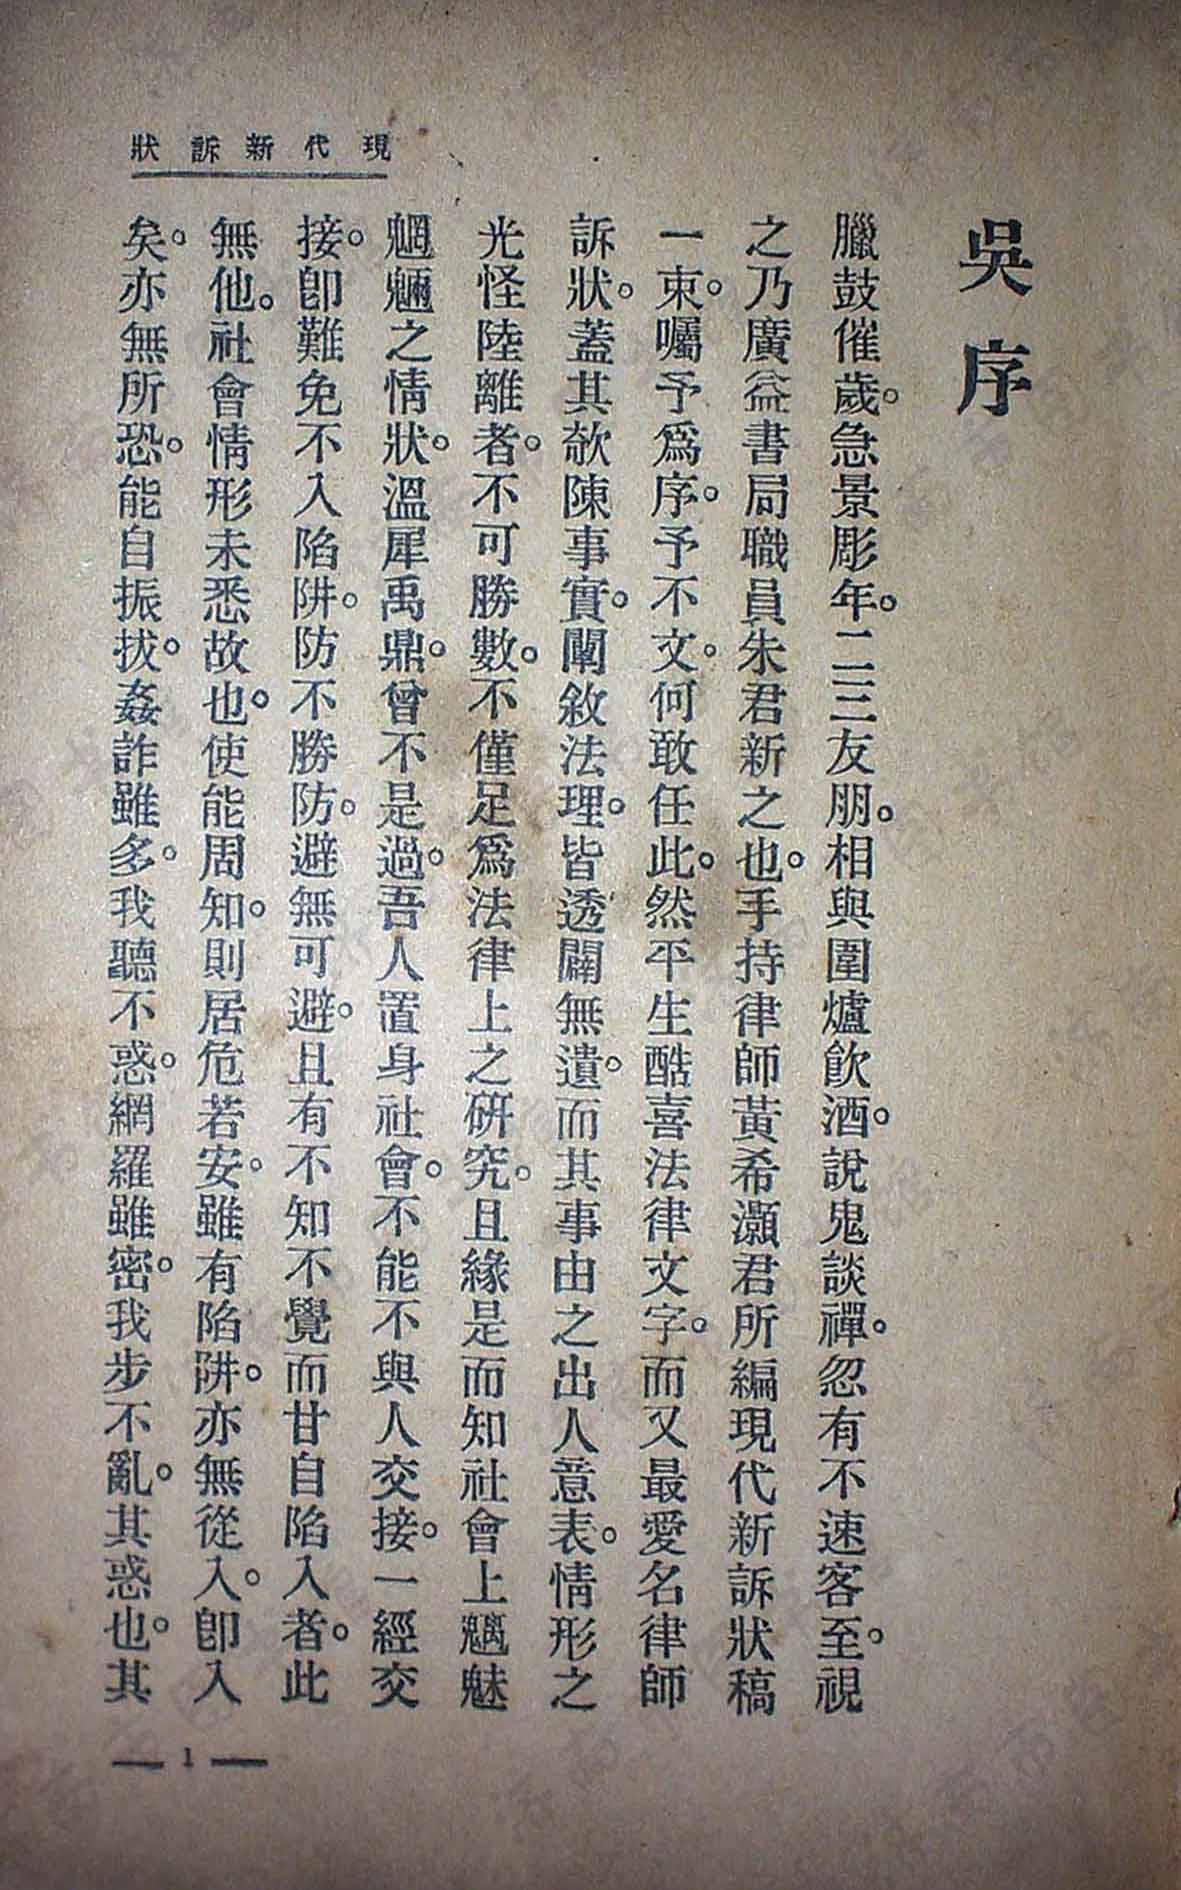 現代新訴狀
吳序
臘鼓催歲。急景彫年。二三友朋。相與圍爐飲酒。說鬼談禪。忽有不速客至。視
之乃廣益書局職員朱君新之也。手持律師黃希灝君所編現代新訴狀稿
一束。囑予爲序。予不文。何敢任此。然平生酷喜法律文字。而又最愛名律師
訴狀。蓋其欷陳事實。闡敘法理。皆透闢無遺。而其事由之出人意表。情形之
光怪陸離者。不可勝數。不僅足爲法律上之研究。且緣是而知社會上魑魅
魍魎之情狀。溫犀禹鼎。曾不是過。吾人置身社會。不能不與人交接。一經交
接。卽難免不入陷阱。防不勝防。避無可避。且有不知不覺而甘自陷入者。此
無他。社會情形未悉故也。使能周知。則居危若安。雖有陷阱。亦無從入。卽入
矣。亦無所恐。能自振拔。姦詐雖多。我聽不惑。網羅雖密。我步不亂。其惑也。其
— 1 —